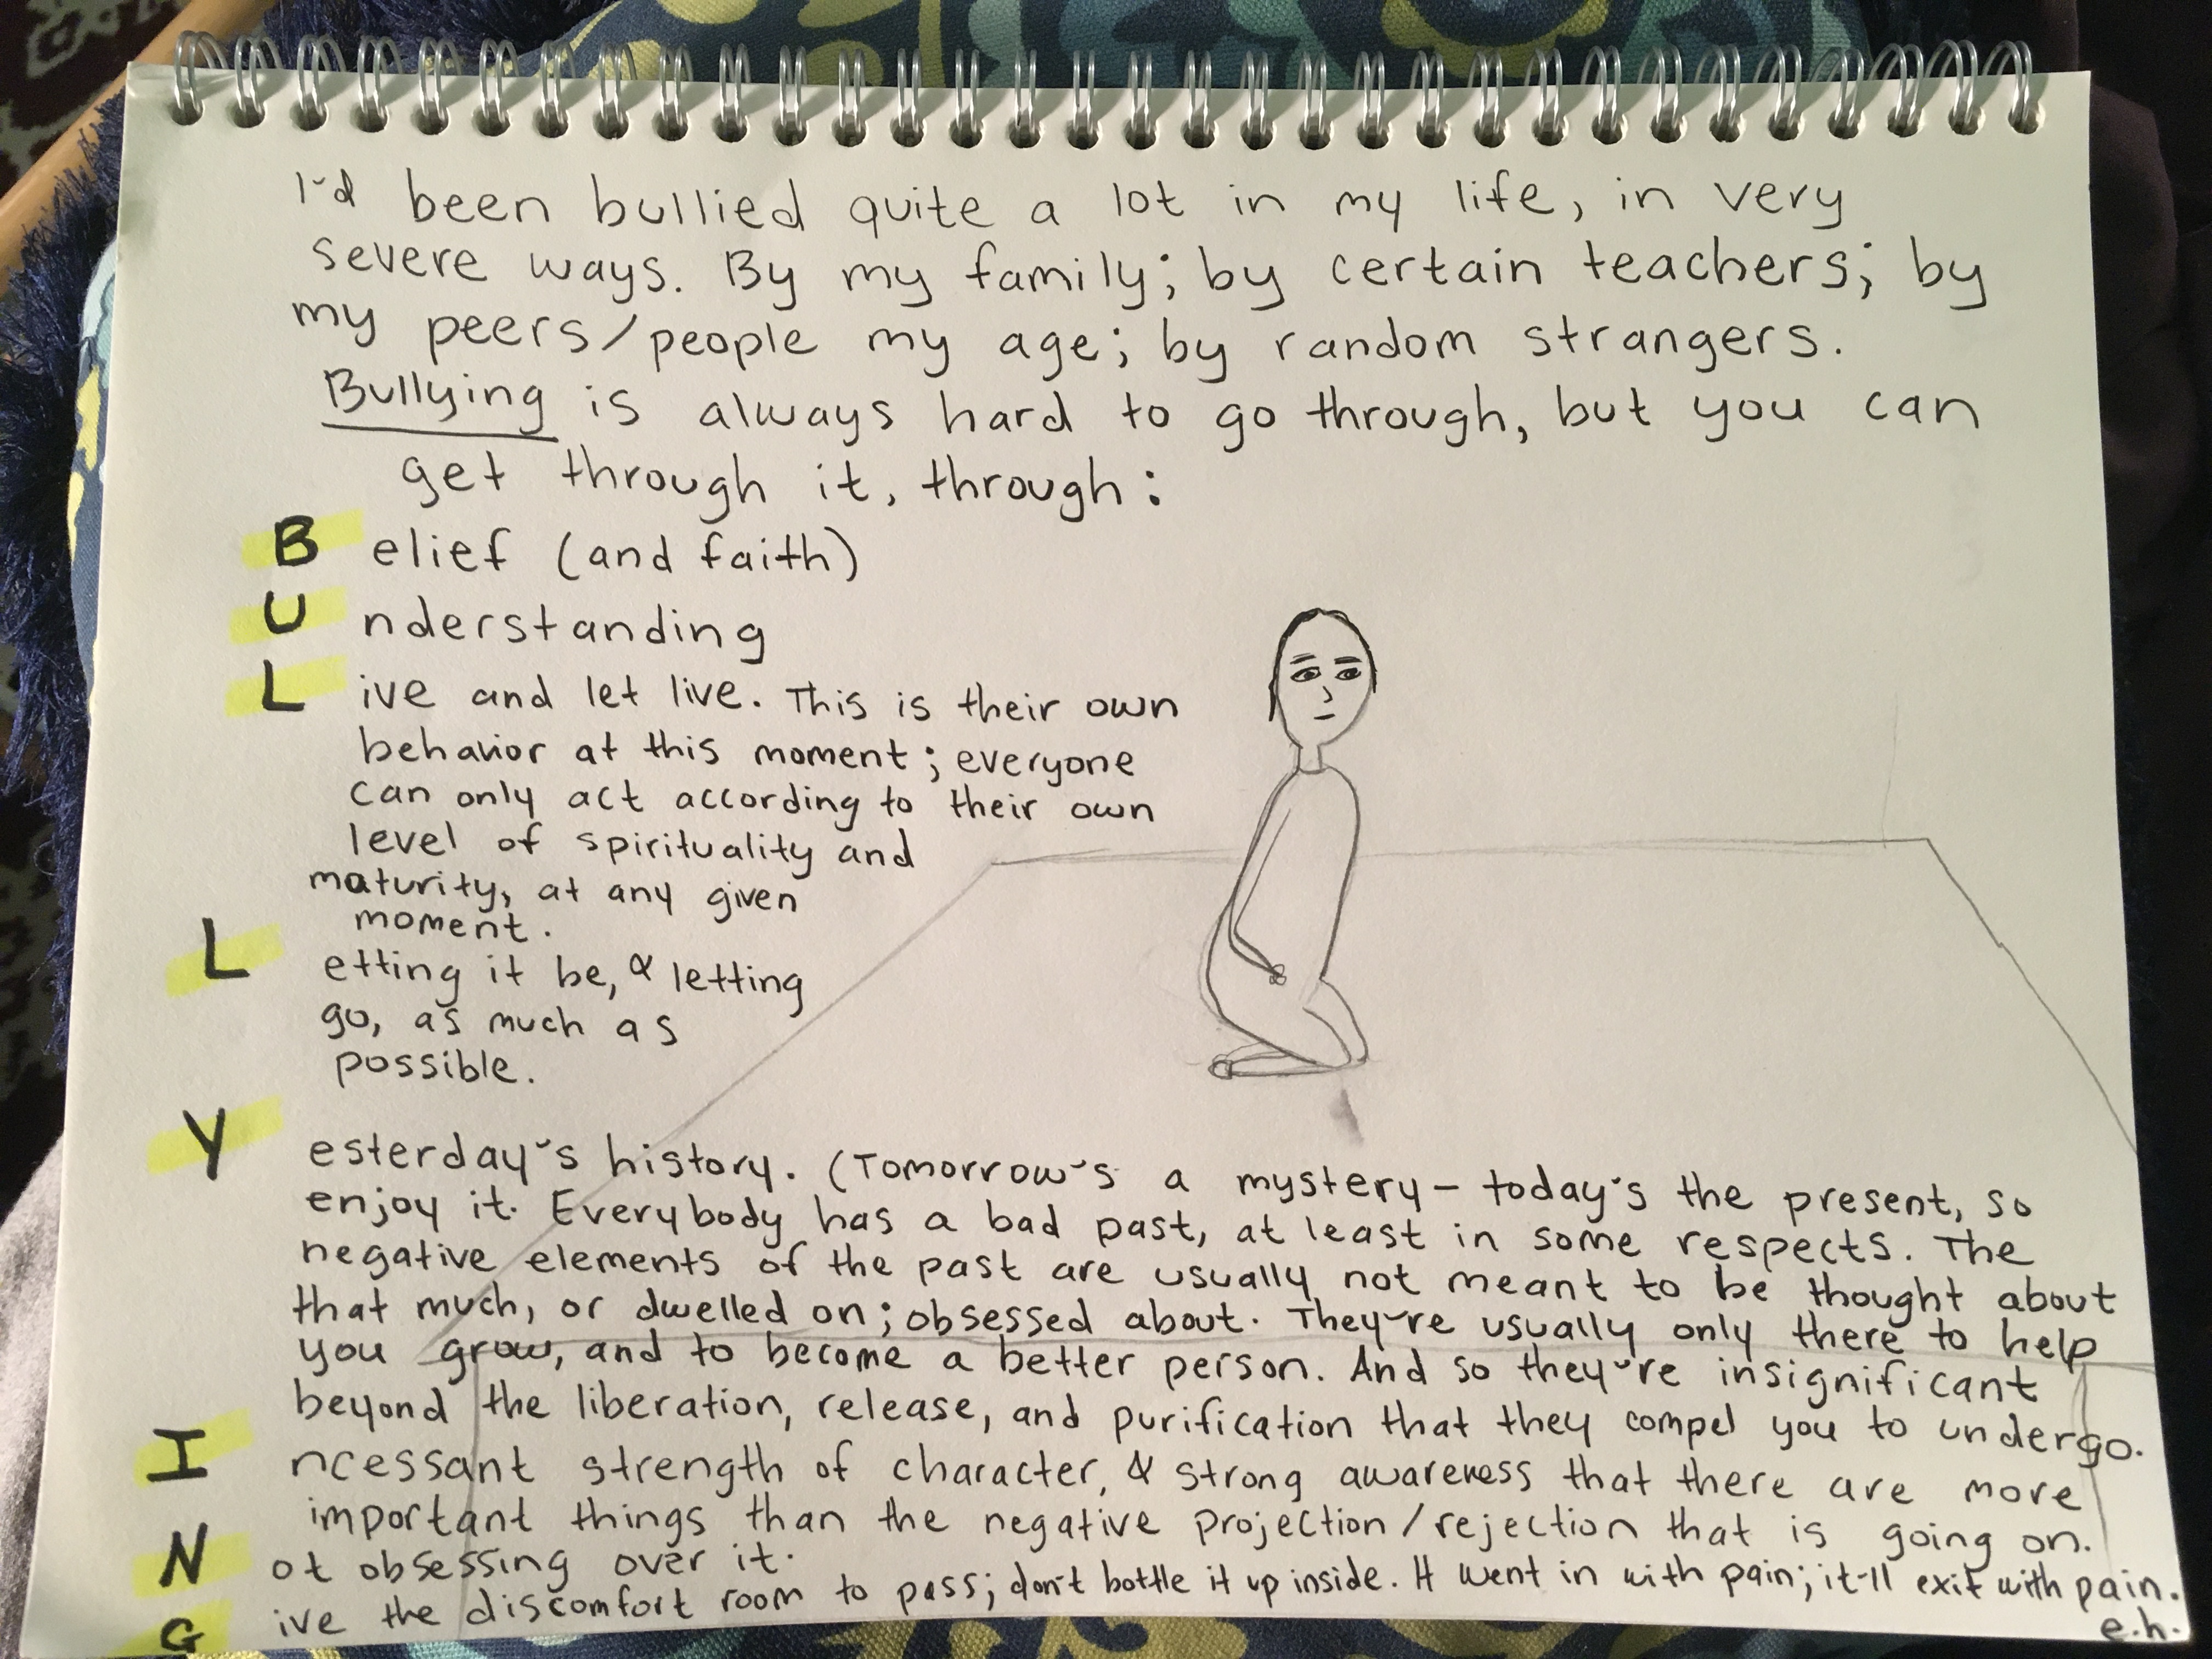 I'd been bullied quite a lot in my life, in very
severe ways. By my family; by certain teachers; by
my peers/people my age; by random strangers.
Bullying is always hard to go through, but you can
get through it, through:
Belief (and faith)
Understanding
Live and let live. This is their own
behavior at this moment; everyone
can only act according to their own
level of spirituality and
maturity, at any given
moment.
Letting it be, & letting
go, as much as
possible.
Yesterday's history. (Tomorrow's a mystery - today's the present, so
enjoy it. Everybody has a bad past, at least in some respects. The
negative elements of the past are usually not meant to be thought about
that much, or dwelled on; obsessed about. They're usually only there to help
you grow, and to become a better person. And so they're insignificant
beyond the liberation, release, and purification that they compel you to undergo.
Incessant strength of character, & strong awareness that there are more
important things than the negative projection/rejection that is going on.
Not obsessing over it.
Give the discomfort room to pass; don't bottle it up inside. It went in with pain; it'll exit with pain.
e.h.